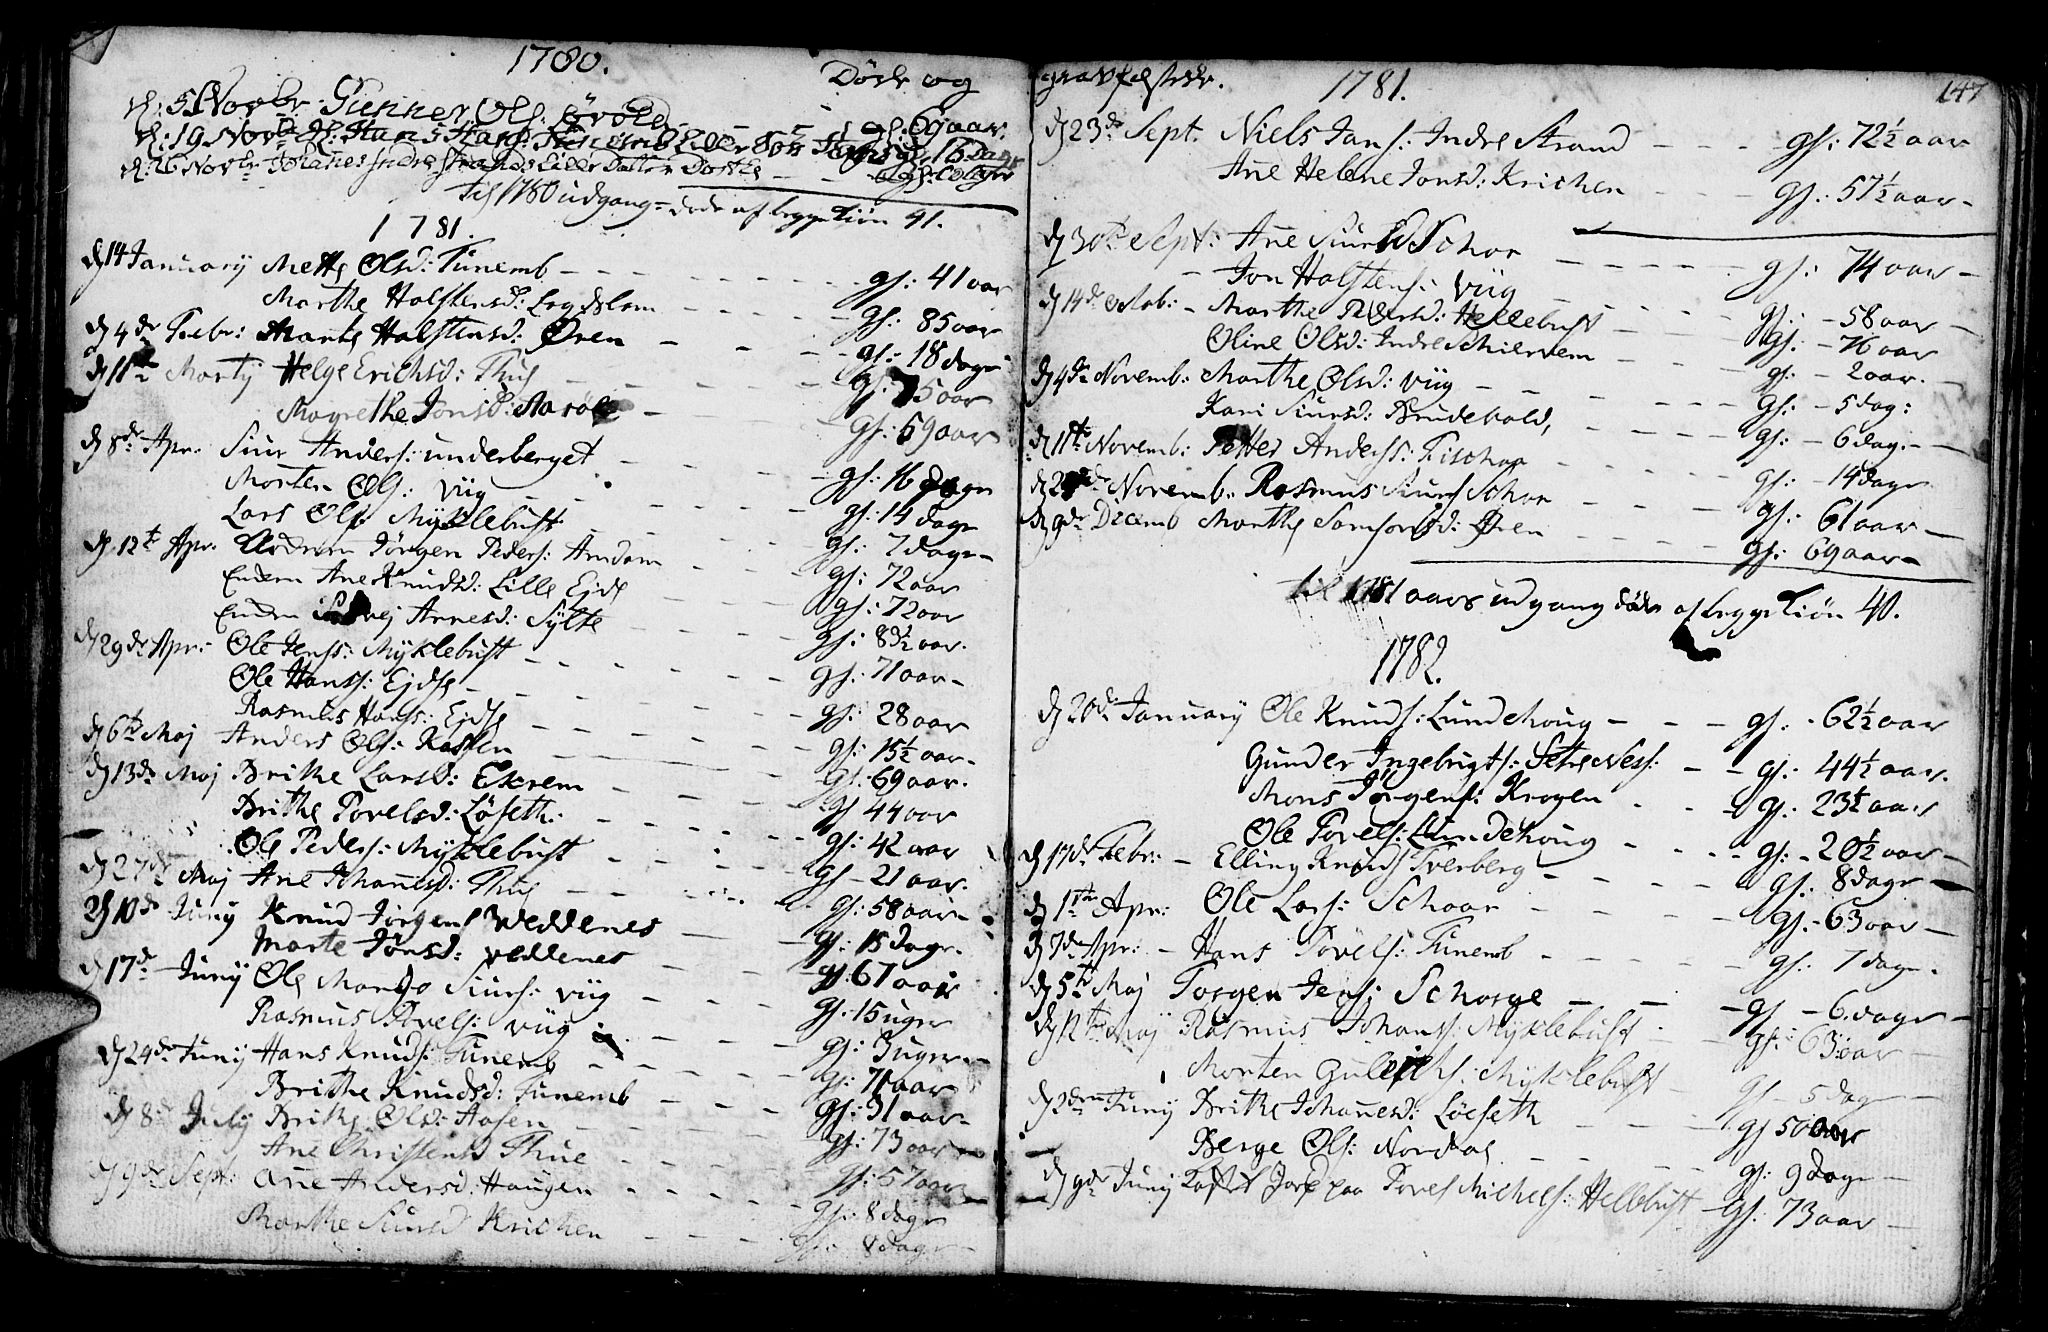 1780.
Døde og
d: 5 Novbr: Gunner Ols:Ørvold - - gl: 69 aar.
d: 19 Novbr Hans Hans: Funemb gl: 16 Dage
d: 26 Novbr Johanes Indre Strands Lille Datter Dorthe - - gl: Dage
til 1780 udgang døde af Leggetiøn 41.
1781.
d 14 January Mette Olsd: Funemb - - - gl: 41 aar
Marthe Halstensd: Legdslem - - - gl: 85 aar
d 4de Febr: Marte Halstensd: Øren - - - gl: 18 dage
d 11te Martij Helge Erichsd: Thue - - - gl: 75 aar
Magrethe Jonsd: Aarøe - - gl: 69 aar
d 8de Apr: Siur Anders: underberget - - - gl: 16 dage
Morten Ols: Viig - - gl: 14 dage
Lars Ols: Myklebust - - - gl: 7 dage
d. 12te Apr: Jørgen Peders: Amdam - - gl: 72 aar
Endem Ane Knudsd: Lille Ejde - - - gl: 72 aar
Endem Arnesd: Sylte - - - gl: 8½ aar.
d 29de Apr: Ole Jens: Myklebust - - - gl: 71 aar
Ole Hans: Ejdse - - - gl: 28 aar
Rasmus Hans: Ejdse - - - gl: 15½ aar
d 6te Maj Anders Ols: Kassen - - - gl: 69 aar.
d 13de Maj Brithe Larsd: Ekrem - - - gl 44 aar
Brithe Povelsd: Løseth: - - - gl: 42 aar
Ole Peders: Myklebust - - - gl - 21 aar.
d 27de Maj Ane Johanesd: Thue - - - gl: 58 aar
d 10de Juny Knud Jørgens Weddenes - - gl: 15 dage
Marte Jonsd: Veddenes - - - gl. 67 aar
d 17de Juny Ole Siurs: Viig - - - gl. 15 uger
Rasmus Povels: Viig - - - gl: 3 uger
d 24de Juny Hans Knuds: Funemb - - - gl: 71 aar
Brithe Knudsd: Funemb - - - gl: 31 aar
d 8de July Brithe Olsd: Aasen - - - gl: 73 aar
Ane Christensd Thue - - - gl: 57 aar
d 9de Sept: Ane Andersd: Haugen - - - gl: 8 dage
Marthe Siursd Krichen - - - gl: 8 dage
gravfæstede.
1781.
147
d 23de Sept. Niels Jans: Indre Strand - - - gl: 72½ aar
Ane Helene Jonsd: Krichen - - - gl: 57½ aar
d 30te Sept: Ane Siursd Schor - - - gl: 74 aar
Jon Halstens: Viig - - - gl: - 58 aar
d 14de Octob: - Marthe Pedersd: Hellebust - - gl: - 76 aar
Oline Olsd: Indre Schiervem - - - gl: - 2 aar.
d 4de Novemb: Marthe Olsd: Viig - - - gl: - 5 dag:
Kari Siursd: Brudevold, - - - gl: - 6 dag:
d 11te Novemb: Petter Anders: Fischaa - - - gl: - 14 dage
Novemb: Rasmus Siurs Schor - - - gl: 61 aar
d 9de Decemb Marthe Samsonsd: Øren - - - gl: 69 aar
til 1781 aars udgang døde af Leggetiøn 40.
1782.
d 20de January Ole Knuds: Lundehoug - - - gl: - 62½ aar
Gunder Ingebrigts: Setrenes: - - gl: 44½ aar.
Mons Jørgens: Krogen - - - gl: 23½ aar
Ole Povels: Lundehoug - - - gl: - 20½ aar
d 17de Febr: - Elling Knuds Tverberg - - - gl: 8 dage
d 1ste Apr: Ole Lars: Schaar - - - gl: - 63 aar
d 7de Apr: - Hans Povels: Funemb - - - gl: 7 dage
d 5te Maj Torgen Jens: Schorge - - - gl - 6. dage
d 12te Maj Rasmus Johans: Myklebust - - gl: 63 aar
Morten Myklebust - gl - 5 dag
d 2den Juny Brithe Johanesd: Løeseth - - - gl 50 aar
Berge Ols: Nordal - - - gl: 9 dage
d 9de Juny Povel Michels: Hellebust - gl: 73 aar